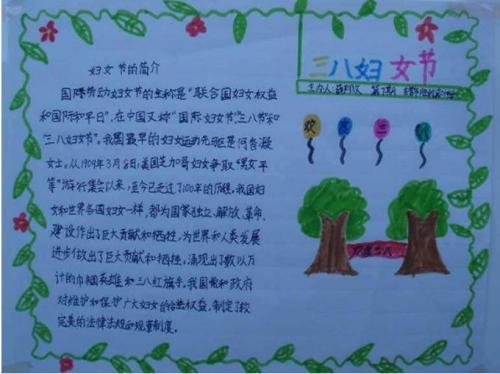 三八妇女节
主办人:
妇女节的简介
国际劳动妇女节的全称是"联合国妇女权益
和国际和平日",在中国又称"国际妇女节""三八节"和
"三八妇女节"。我国最早的妇女运动先驱是何香凝
女士。从1909年3月8日,美国芝加哥妇女争取"男女平
等"游行集会以来,至今已走过了100年的历程,我国妇
女和世界各国妇女一样,都为国家独立、解放、革命、
建设作出了巨大贡献和牺牲,为世界和人类发展
进步做出了巨大贡献和牺牲,涌现出了数以万
计的巾帼英雄和三八红旗手。我国党和政府
对维护和保护广大妇女的合法权益,制定了较
完美的法律法规和规章制度。
欢 度 三 八
欢度三八